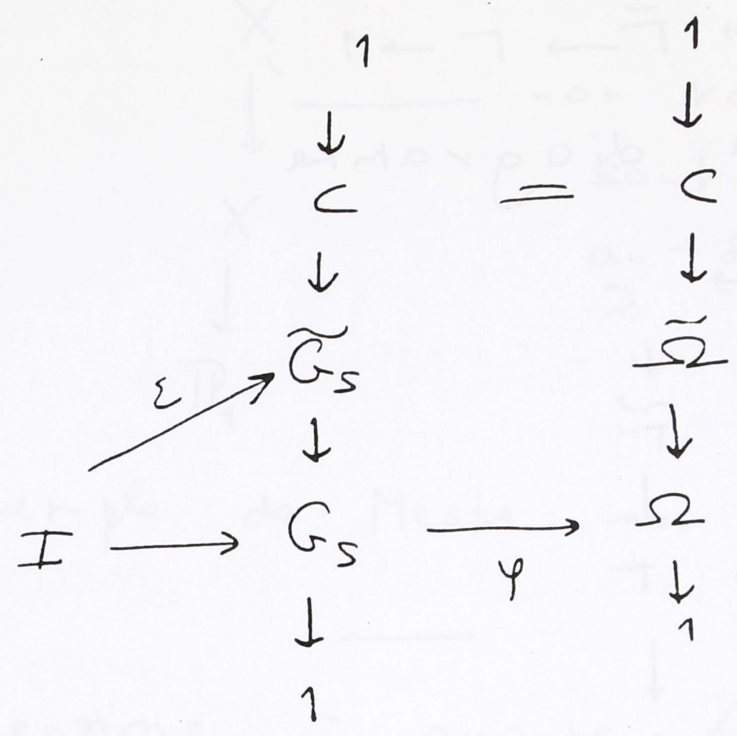 1 1
↓ ↓
C = C
↓ ↓
G̃ₛ Ω̃
ε
↓ ↓
I → Gₛ → Ω
φ
↓ ↓
1
1